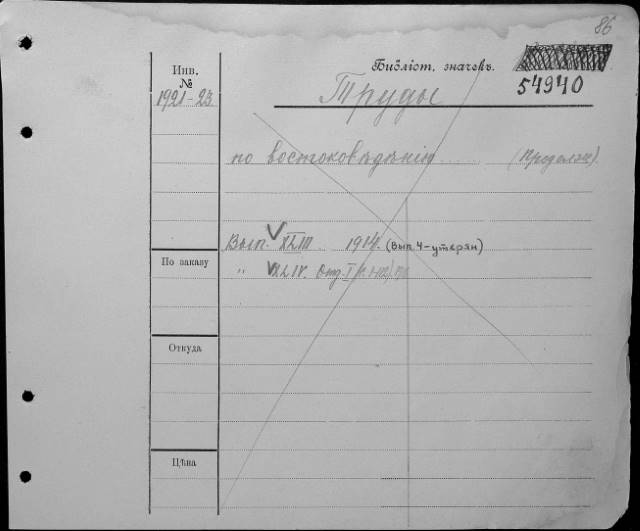 86
Инв. №
1921-23
Библіот. значекъ.
54940
Труды
по востоковѣдѣнію ...... (Продолж.)
Вып. XLIII 1914. (вып. 4-утерян)
" XLIV.
По заказу
Откуда
Цѣна